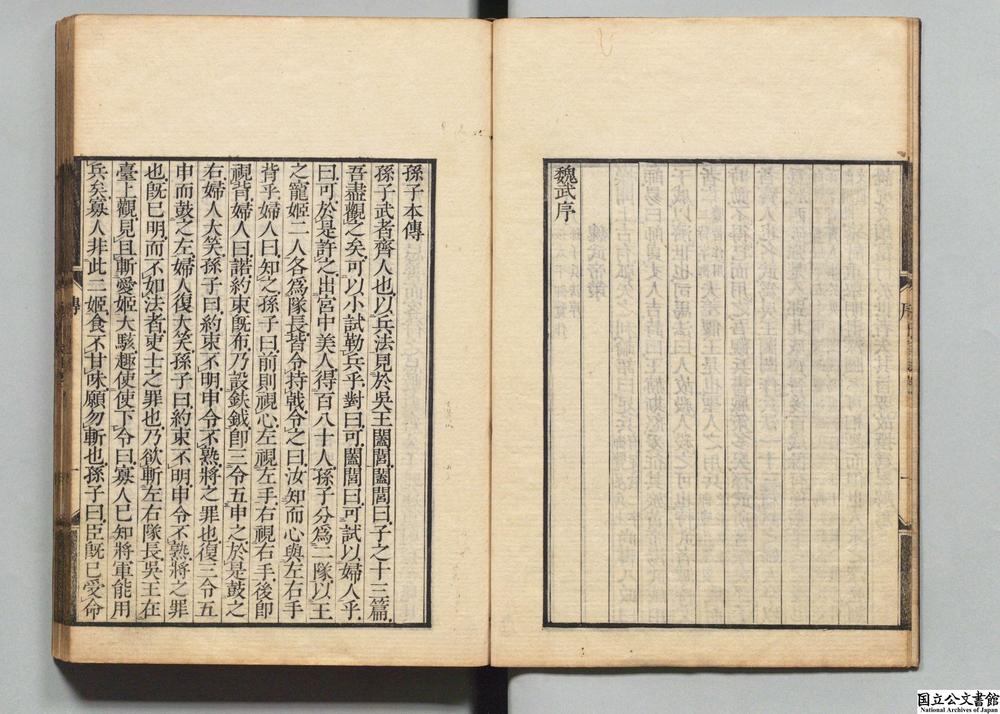 魏武序
序
孫子本傳
孫子武者齊人也以兵法見於吳王闔閭闔閭曰子之十三篇
吾盡觀之矣可以小試勒兵乎對曰可闔閭曰可試以婦人乎
曰可於是許之出宮中美人得百八十人孫子分為二隊以王
之寵姬二人各為隊長皆令持戟令之曰汝知而心與左右手
背乎婦人曰知之孫子曰前則視心左視左手右視右手後卽
視背婦人曰諾約束旣布乃設鈇鉞卽三令五申之於是鼓之
右婦人大笑孫子曰約束不明申令不熟將之罪也復三令五
申而鼓之左婦人復大笑孫子曰約束不明申令不熟將之罪
也旣已明而不如法者吏士之罪也乃欲斬左右隊長吳王在
臺上觀見且斬愛姬大駭趣使使下令曰寡人已知將軍能用
兵矣寡人非此二姬食不甘味願勿斬也孫子曰臣旣已受命
傳
国立公文書館
National Archives of Japan